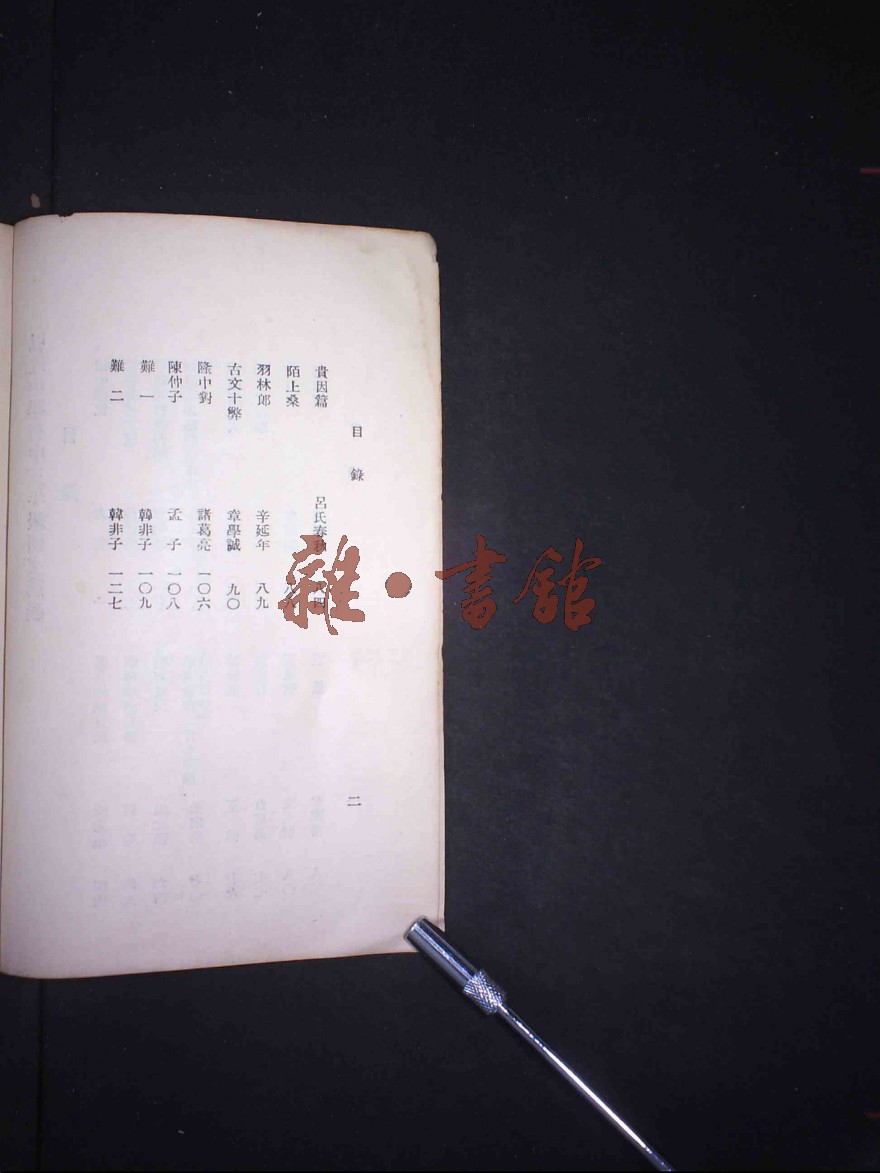 目錄
二
貴因篇 呂氏春秋 八四
陌上桑 八八
羽林郎 辛延年 八九
古文十弊 章學誠 九〇
隆中對 諸葛亮 一〇六
陳仲子 孟子 一〇八
難一 韓非子 一〇九
難二 韓非子 一二七
雜·書館